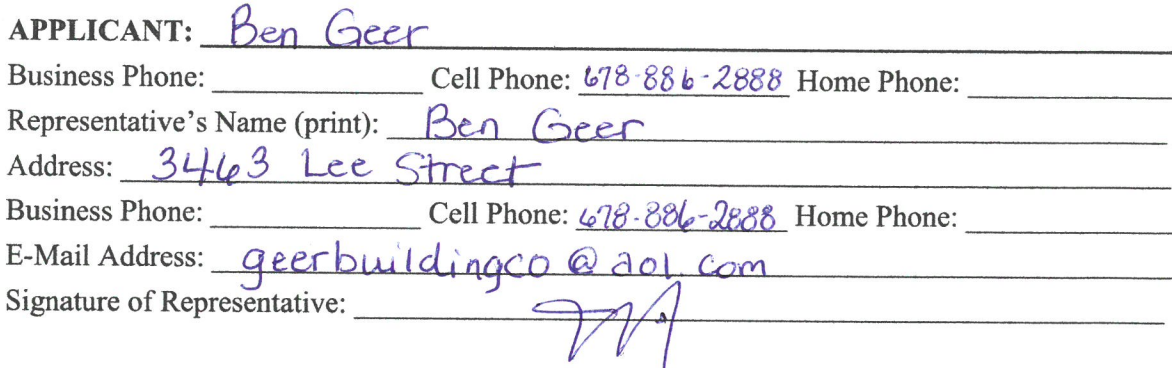 APPLICANT: Ben Geer
Business Phone: Cell Phone: 678-886-2888 Home Phone:
Representative's Name (print): Ben Geer
Address: 3463 Lee Street
Business Phone: Cell Phone: 678-886-2888 Home Phone:
E-Mail Address: geerbuildingco@aol.com
Signature of Representative: